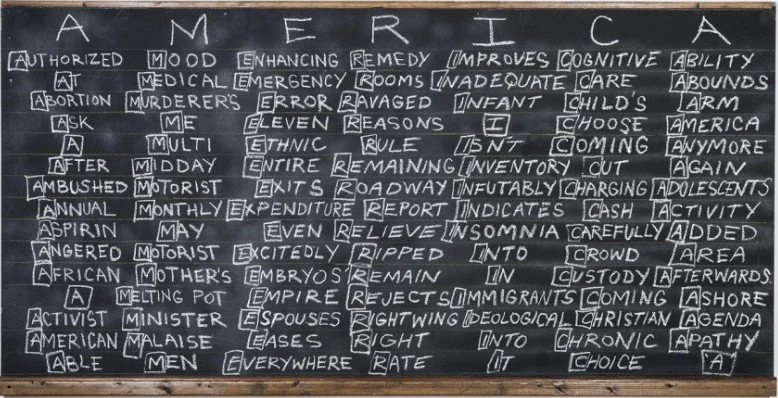 A M E R I C A
AUTHORIZED MOOD ENHANCING REMEDY IMPROVES COGNITIVE ABILITY
AT MEDICAL EMERGENCY ROOMS INADEQUATE CARE ABOUNDS
ABORTION MURDERER'S ERROR RAVAGED INFANT CHILD'S ARM
ASK ME ELEVEN REASONS I CHOOSE AMERICA
A MULTI ETHNIC RULE ISNT COMING ANYMORE
AFTER MIDDAY ENTIRE REMAINING INVENTORY CUT AGAIN
AMBUSHED MOTORIST EXITS ROADWAY INFUTABLY CHARGING ADOLESCENTS
ANNUAL MONTHLY EXPENDITURE REPORT INDICATES CASH ACTIVITY
ASPIRIN MAY EVEN RELIEVE INSOMNIA CAREFULLY ADDED
ANGERED MOTORIST EXCITEDLY RIPPED INTO CROWD AREA
AFRICAN MOTHER'S EMBRYOS' REMAIN IN CUSTODY AFTERWARDS.
A MELTING POT EMPIRE REJECTS IMMIGRANTS COMING ASHORE
ACTIVIST MINISTER ESPOUSES RIGHTWING IDEOLOGICAL CHRISTIAN AGENDA
AMERICAN MALAISE EASES RIGHT INTO CHRONIC APATHY
ABLE MEN EVERYWHERE RATE IT CHOICE 'A'